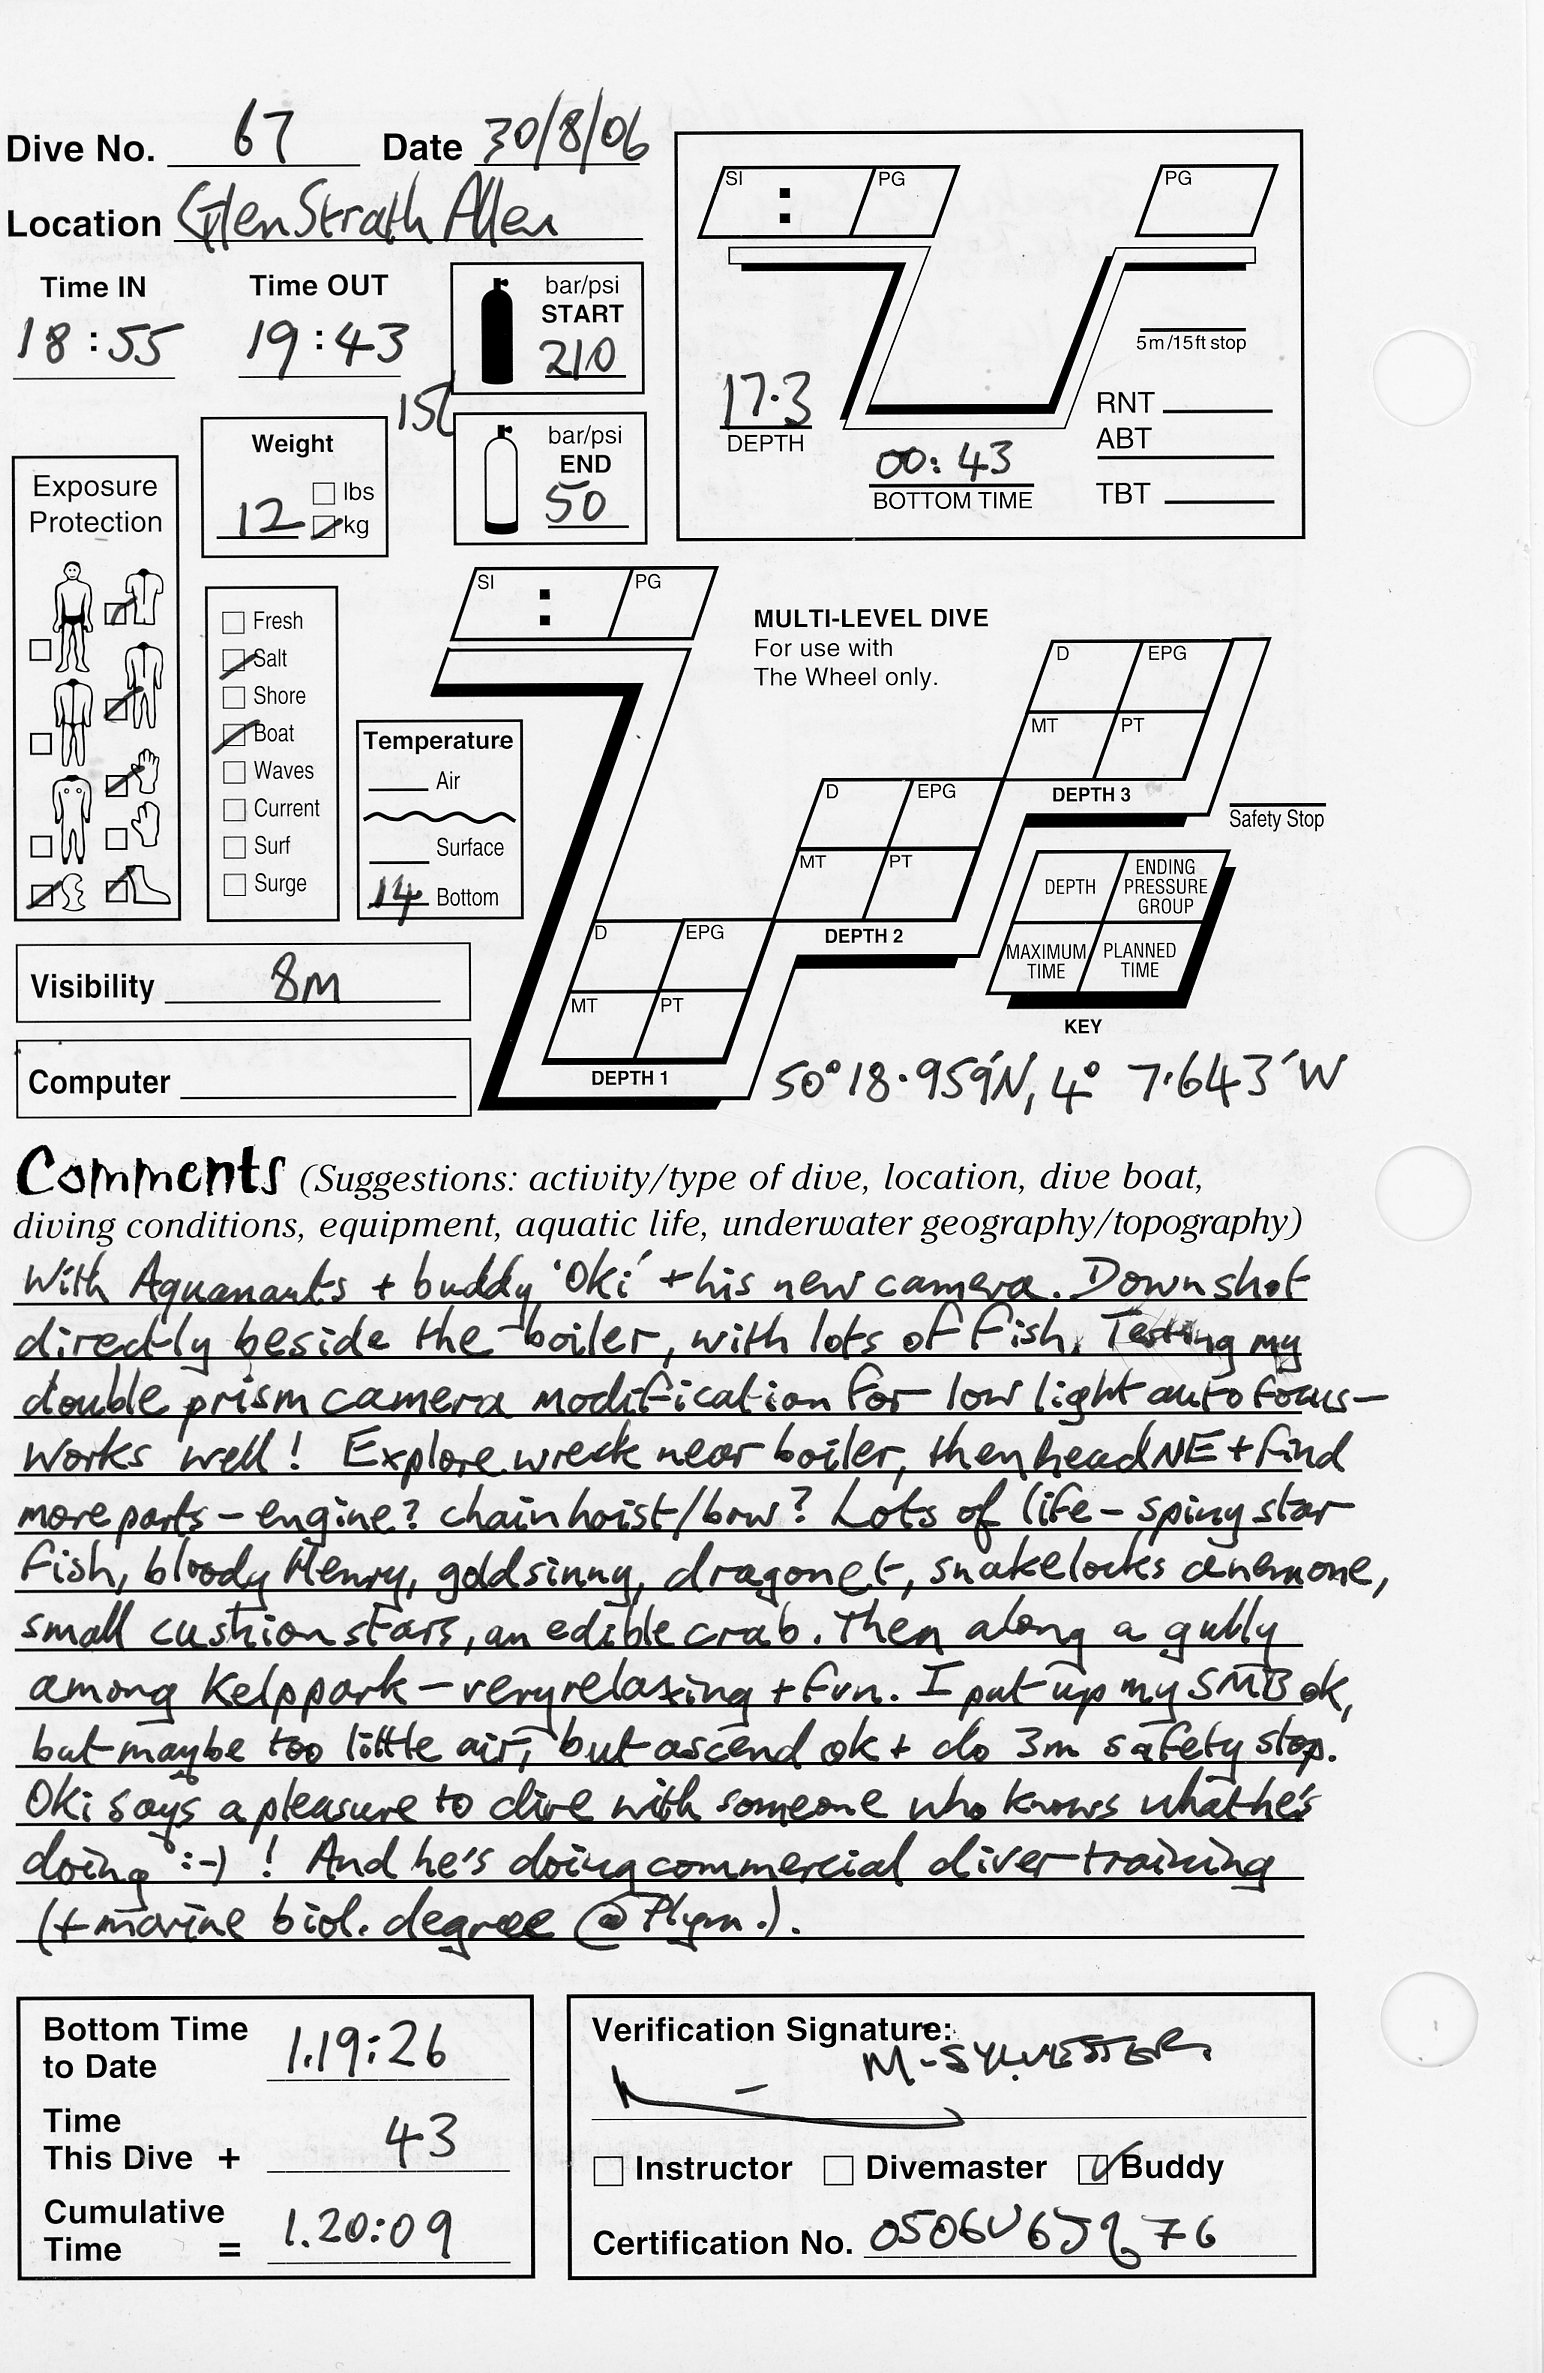 Dive No. 67 Date 30/8/06
Location Glen Strath Allen
Time IN Time OUT
18:55 19:43
bar/psi
START
210
15L
bar/psi
END
50
Weight
12
lbs
kg
Exposure
Protection
Fresh
Salt
Shore
Boat
Waves
Current
Surf
Surge
Temperature
Air
Surface
14 Bottom
Visibility 8m
Computer
SI : PG PG
17.3
DEPTH
00:43
BOTTOM TIME
5m/15ft stop
RNT
ABT
TBT
SI : PG
MULTI-LEVEL DIVE
For use with
The Wheel only.
D EPG
MT PT
DEPTH 3
Safety Stop
D EPG
MT PT
DEPTH 2
D EPG
MT PT
DEPTH 1
DEPTH
ENDING
PRESSURE
GROUP
MAXIMUM
TIME
PLANNED
TIME
KEY
50° 18.959'N, 4° 7.643'W
Comments (Suggestions: activity/type of dive, location, dive boat,
diving conditions, equipment, aquatic life, underwater geography/topography)
With Aquanauts + buddy 'Oki' + his new camera. Down shot
directly beside the boiler, with lots of fish. Testing my
double prism camera modification for low light autofocus –
works well! Explore wreck near boiler, then head NE + find
more parts – engine? chain hoist/bow? Lots of life – spiny star
fish, bloody Henry, goldsinny, dragonet, snakelocks anemone,
small cushion stars, an edible crab. Then along a gully
among kelp park – very relaxing + fun. I put up my SMB ok,
but maybe too little air, but ascend ok + do 3m safety stop.
Oki says a pleasure to dive with someone who knows what he's
doing :-) ! And he's doing commercial diver training
(+ marine biol. degree @ Plym.).
Bottom Time
to Date 1.19:26
Time
This Dive + 43
Cumulative
Time = 1.20:09
Verification Signature:
M. SYLVESTER
Instructor Divemaster Buddy
Certification No.